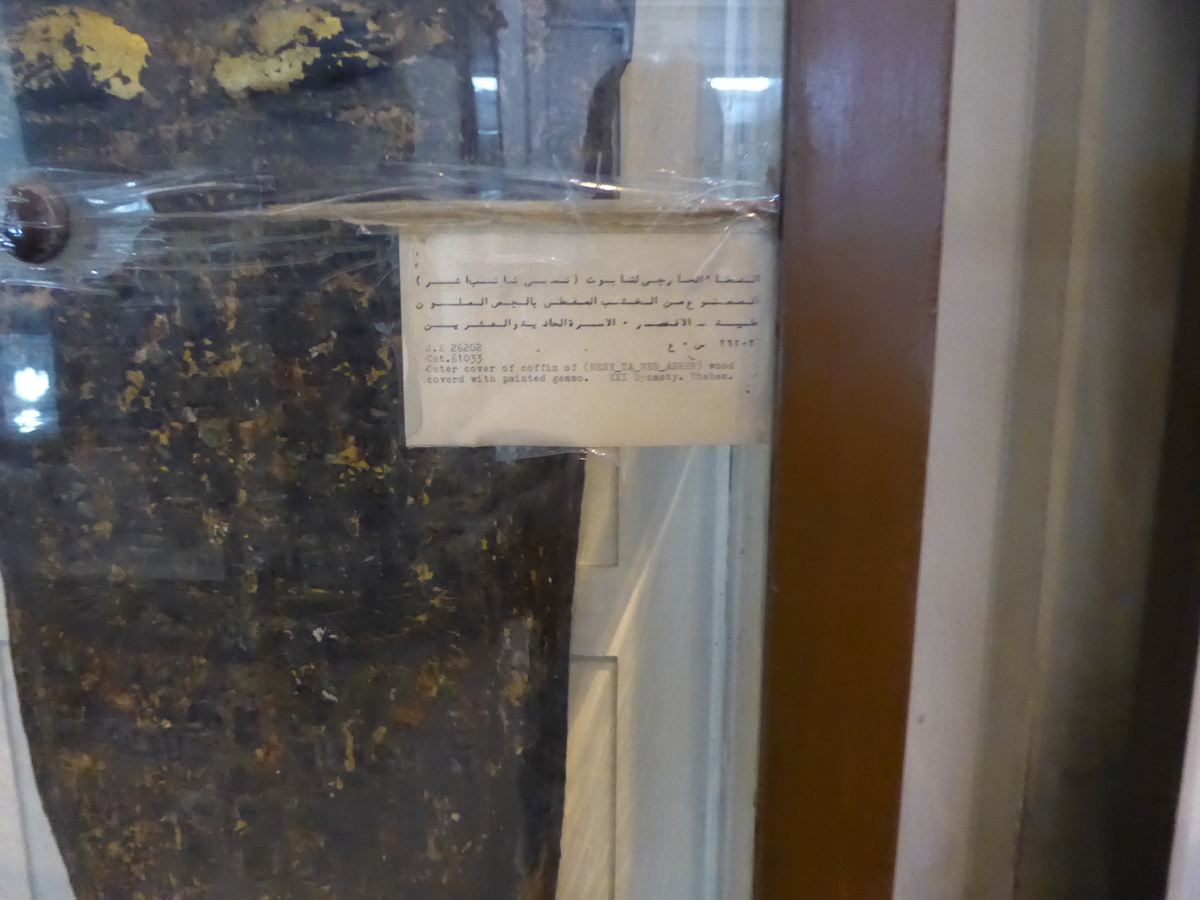 الغطاء الخارجى لتابوت (نسى تا نب اشر)
المصنوع من الخشب المغطى بالجص الملون
طيبة - الاقصر - الاسرة الحادية والعشرين
س ٠ ع
J.E 26202
Cat.61033
Outer cover of coffin of (NESY_TA_NEB_ASHER) wood
coverd with painted gesso. XXI Dynasty. Thebes.